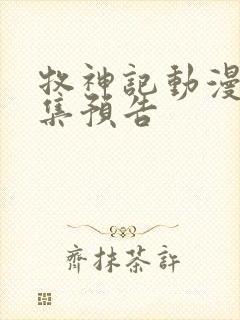 牧神記動漫
集預告
齊抹茶許